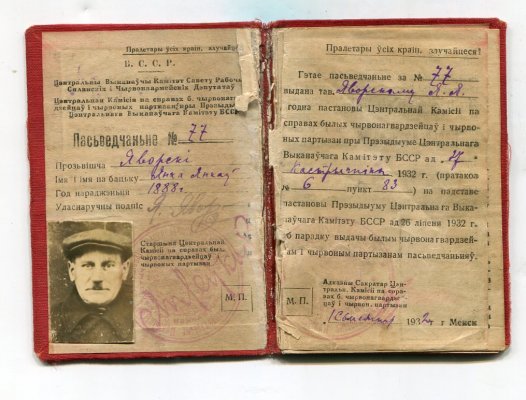 Пралетары ўсіх краін, злучайцеся!
Б. С. С. Р.
Центральны Выканаўчы Камітэт Совету Рабочых
Сялянскіх і Чырвонаармейскіх Дэпутатаў
Цэнтральная Камісія па справах б. чырвонагвардзейцаў
і чырвоных партызан пры Прэзыдыуме
Цэнтральнага Выканаўчага Камітэту БССР
Пасьведчаньне № 77
Прозьвішча Яворскі
Імя і імя па бацьку
Год нараджэньня 1888 г.
Уласнаручны подпіс
Старшыня Цэнтральнай
Камісіі па справах был.
чырвонагвардзейцаў
чырвоных партызан
М. П.
Пралетары ўсіх краін, злучайцеся!
Гэтае пасьведчаньне за № 77
выдана тав. Яворскому
годна пастановы Цэнтральнай Камісіі па
справах былых чырвонагвардзейцаў і чырво-
ных партызан пры Прэзыдыуме Цэнтральнага
Выканаўчага Камітэту БССР ад 27
Кастрычніка 1932 г. (пратакол
№ 6 пункт 83) на падставе
пастановы Прэзыдыуму Цэнтральнага Выка-
наўчага Камітэту БССР ад 26 ліпеня 1932 г.
аб парадку выдачы былым чырвонагвардзей-
цам і чырвоным партызанам пасьведчаньняў.
Адказны Сакратар Цэн-
тральн. Камісіі па спра-
вах б. чырвонагвардзей-
цаў і чырвон. партызан
М. П.
193 г. Менск